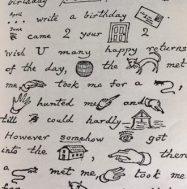 birthday
April ... write a birthday
June came 2 your 2
Wish U many happy returns
of the day, the met
me took me for a,
hunted me and
till could hardly
However somehow got
into the, them
a met me, took me